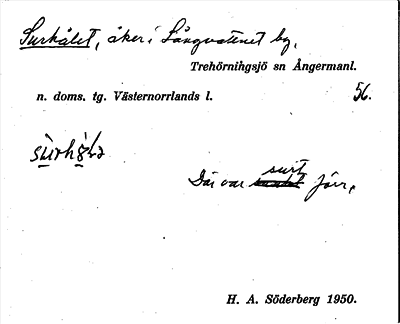 Surhålet, åker i Långvattnet by,
Trehörningsjö sn Ångermanl.
n. doms. tg. Västernorrlands l. 56.
surt
Där var förr.
H. A. Söderberg 1950.